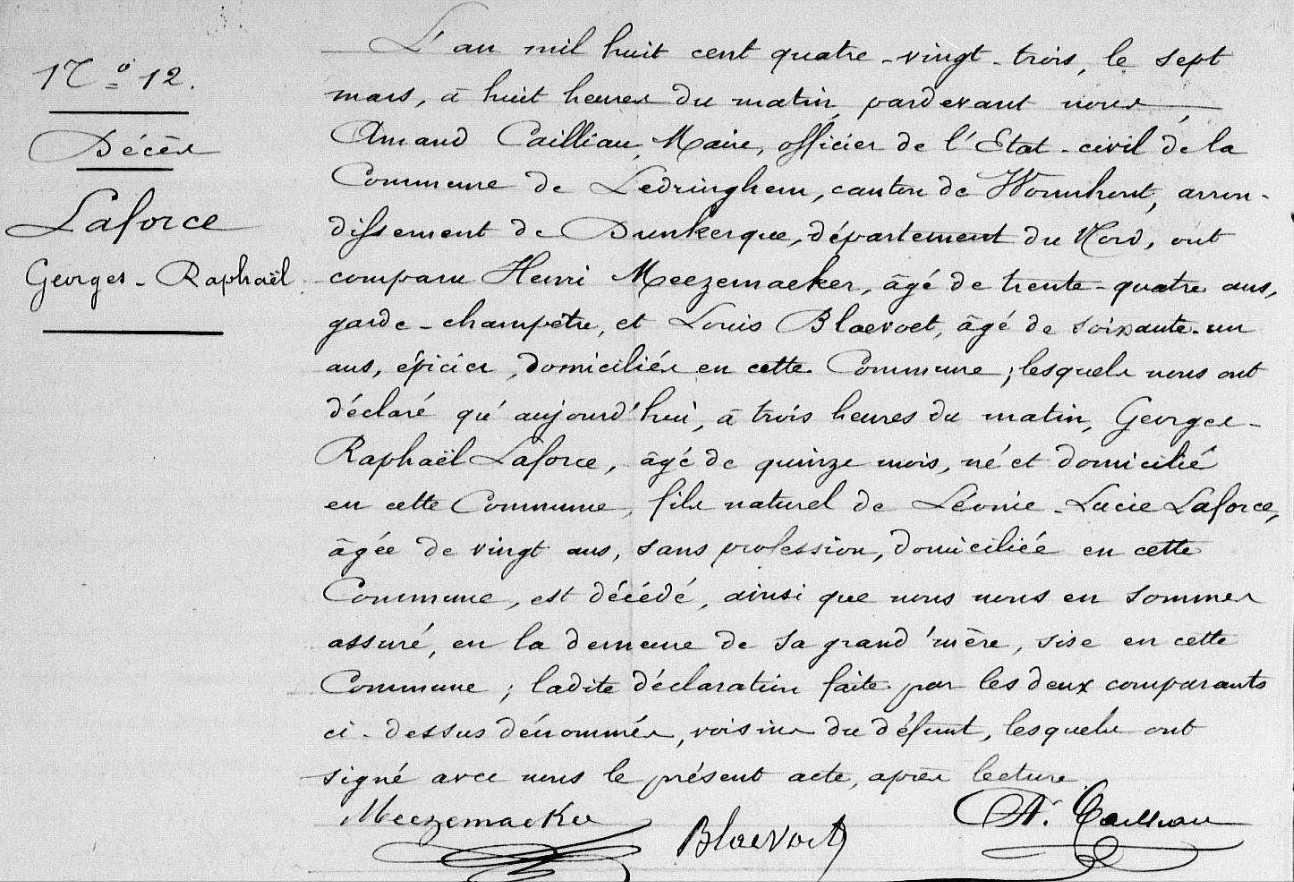 N.º 12.
Décès
Laforce
Georges-Raphaël
L'an mil huit cent quatre-vingt-trois, le sept
mars, à huit heures du matin, pardevant nous
Amand Cailliau, Maire, officier de l'Etat-civil de la
Commune de Ledringhem, canton de Wormhout, arron-
dissement de Dunkerque, département du Nord, ont
comparu Henri Meezemaeker, âgé de trente-quatre ans,
garde-champêtre, et Louis Blaevoet, âgé de soixante-un
ans, épicier, domiciliés en cette Commune; lesquels nous ont
déclaré qu'aujourd'hui, à trois heures du matin, Georges-
Raphaël Laforce, âgé de quinze mois, né et domicilié
en cette Commune, fils naturel de Léonie-Lucie Laforce,
âgée de vingt ans, sans profession, domiciliée en cette
Commune, est décédé, ainsi que nous nous en sommes
assuré, en la demeure de sa grand'mère, sise en cette
Commune; ladite déclaration faite par les deux comparants
ci-dessus dénommés, voisins du défunt, lesquels ont
signé avec nous le présent acte, après lecture
Meezemaeker
Blaevoet
A. Cailliau